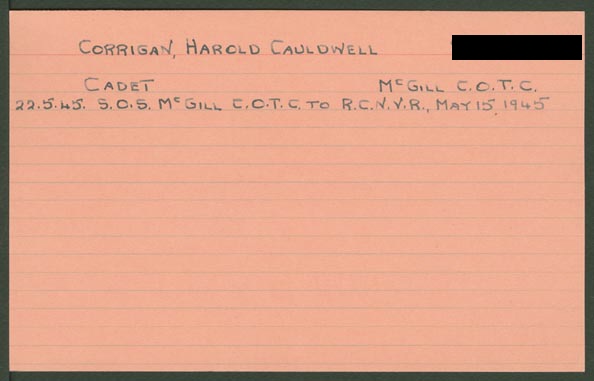 CORRIGAN, HAROLD CAULDWELL
CADET McGILL C.O.T.C.
22.5.45. S.O.S. McGILL C.O.T.C. TO R.C.N.V.R., MAY 15, 1945